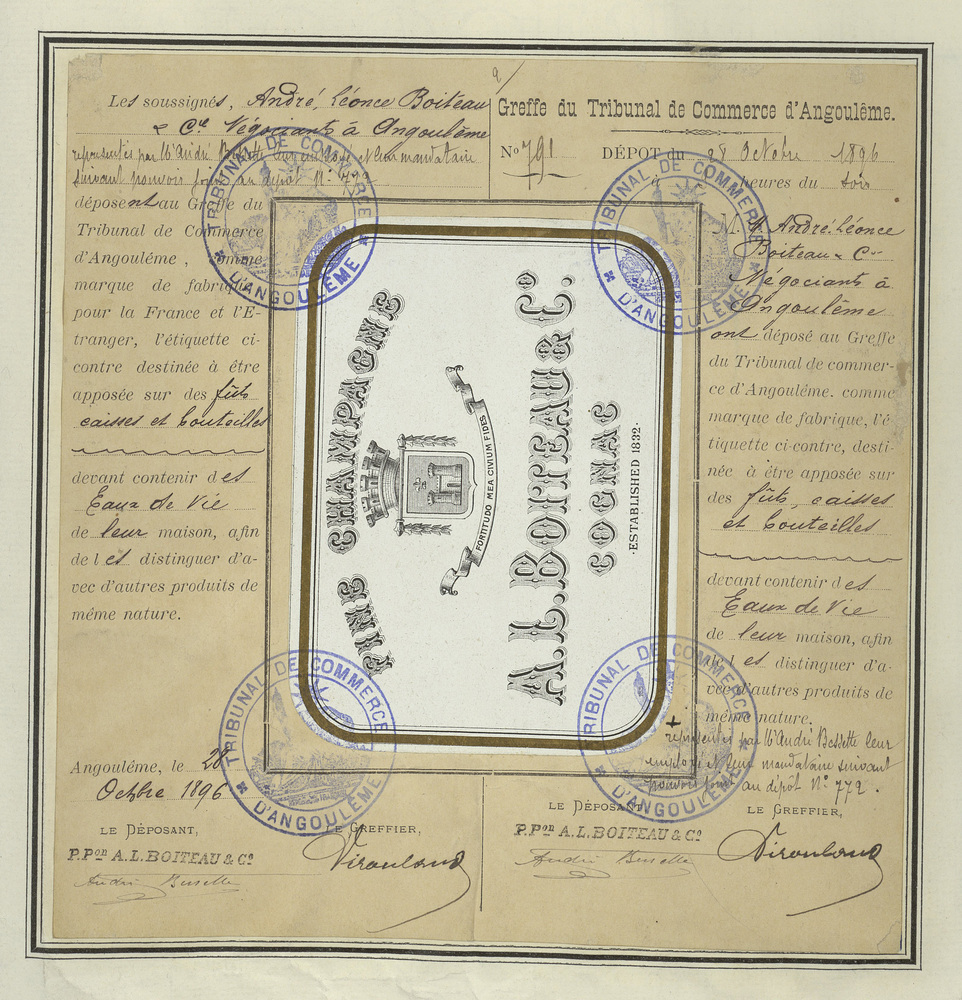 Les soussignés, André, Léonce Boiteau
& Cie Négociants à Angoulême
représentés par Mr André Bessette leur employé et leur mandataire
suivant pouvoir joint au dépôt N° 772
déposent au Greffe du
Tribunal de Commerce
d'Angoulême, comme
marque de fabrique
pour la France et l'E-
tranger, l'étiquette ci-
contre destinée à être
apposée sur des fûts
caisses et bouteilles
devant contenir des
Eaux de Vie
de leur maison, afin
de les distinguer d'a-
vec d'autres produits de
même nature.
Angoulême, le 28
Octbre 1896
LE DÉPOSANT,
LE GREFFIER,
P.Pon A.L.BOITEAU & Co
André Bessette
Greffe du Tribunal de Commerce d'Angoulême.
No 791 DÉPOT du 28 Octobre 1896
à heures du soir
M. A. André Léonce
Boiteau & Cie
Négociants à
Angoulême
ont déposé au Greffe
du Tribunal de commer-
ce d'Angoulême. comme
marque de fabrique, l'é
tiquette ci-contre, desti-
née à être apposée sur
des fûts, caisses
et bouteilles
devant contenir des
Eaux de Vie
de leur maison, afin
de les distinguer d'a-
vec d'autres produits de
même nature.
+ représentés par Mr André Bessette leur
employé et leur mandataire suivant
pouvoir joint au dépôt N° 772.
LE DÉPOSANT
LE GREFFIER,
P.Pon A.L.BOITEAU & Co
André Bessette
FINE CHAMPAGNE
FORTITUDO MEA CIVIUM FIDES
A.L.BOITEAU & Co.
COGNAC
·ESTABLISHED 1832·
TRIBUNAL DE COMMERCE
D'ANGOULÊME
TRIBUNAL DE COMMERCE
D'ANGOULÊME
TRIBUNAL DE COMMERCE
D'ANGOULÊME
TRIBUNAL DE COMMERCE
D'ANGOULÊME